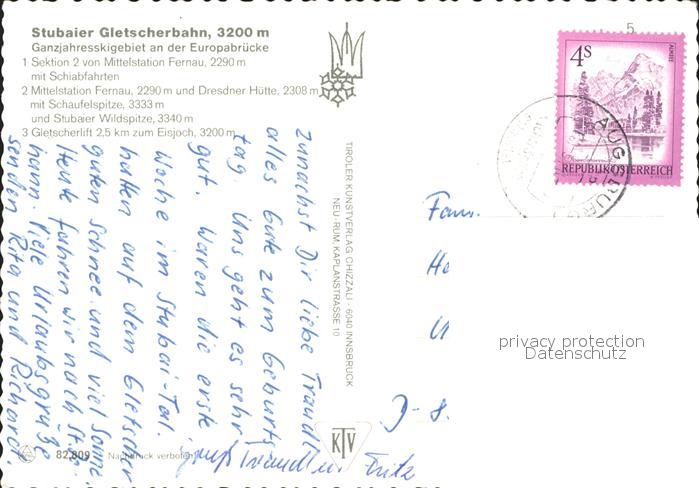 Stubaier Gletscherbahn, 3200 m
Ganzjahresskigebiet an der Europabrücke
1 Sektion 2 von Mittelstation Fernau, 2290 m
mit Schiabfahrten
2 Mittelstation Fernau, 2290 m und Dresdner Hütte, 2308 m
mit Schaufelspitze, 3333 m
und Stubaier Wildspitze, 3340 m
3 Gletscherlift 2,5 km zum Eisjoch, 3200 m
zunächst Dir liebe Traudl
alles Gute zum Geburts-
tag. Uns geht es sehr
gut. Waren die erste
Woche im Stubai-Tal.
hatten auf dem Gletscher
guten Schnee und viel Sonne.
Heute fahren wir nach St.
hann. Viele Urlaubsgrüße
senden Rita und Richard
Traudl u. Fritz
82.809
Nachdruck verboten
TIROLER KUNSTVERLAG CHIZZALI · 6040 INNSBRUCK
NEU-RUM, KAPLANSTRASSE 10
KTV
5
4S
ALMSEE
REPUBLIK ÖSTERREICH
AUGSBURG
Fam.
He
D-8
privacy protection
Datenschutz